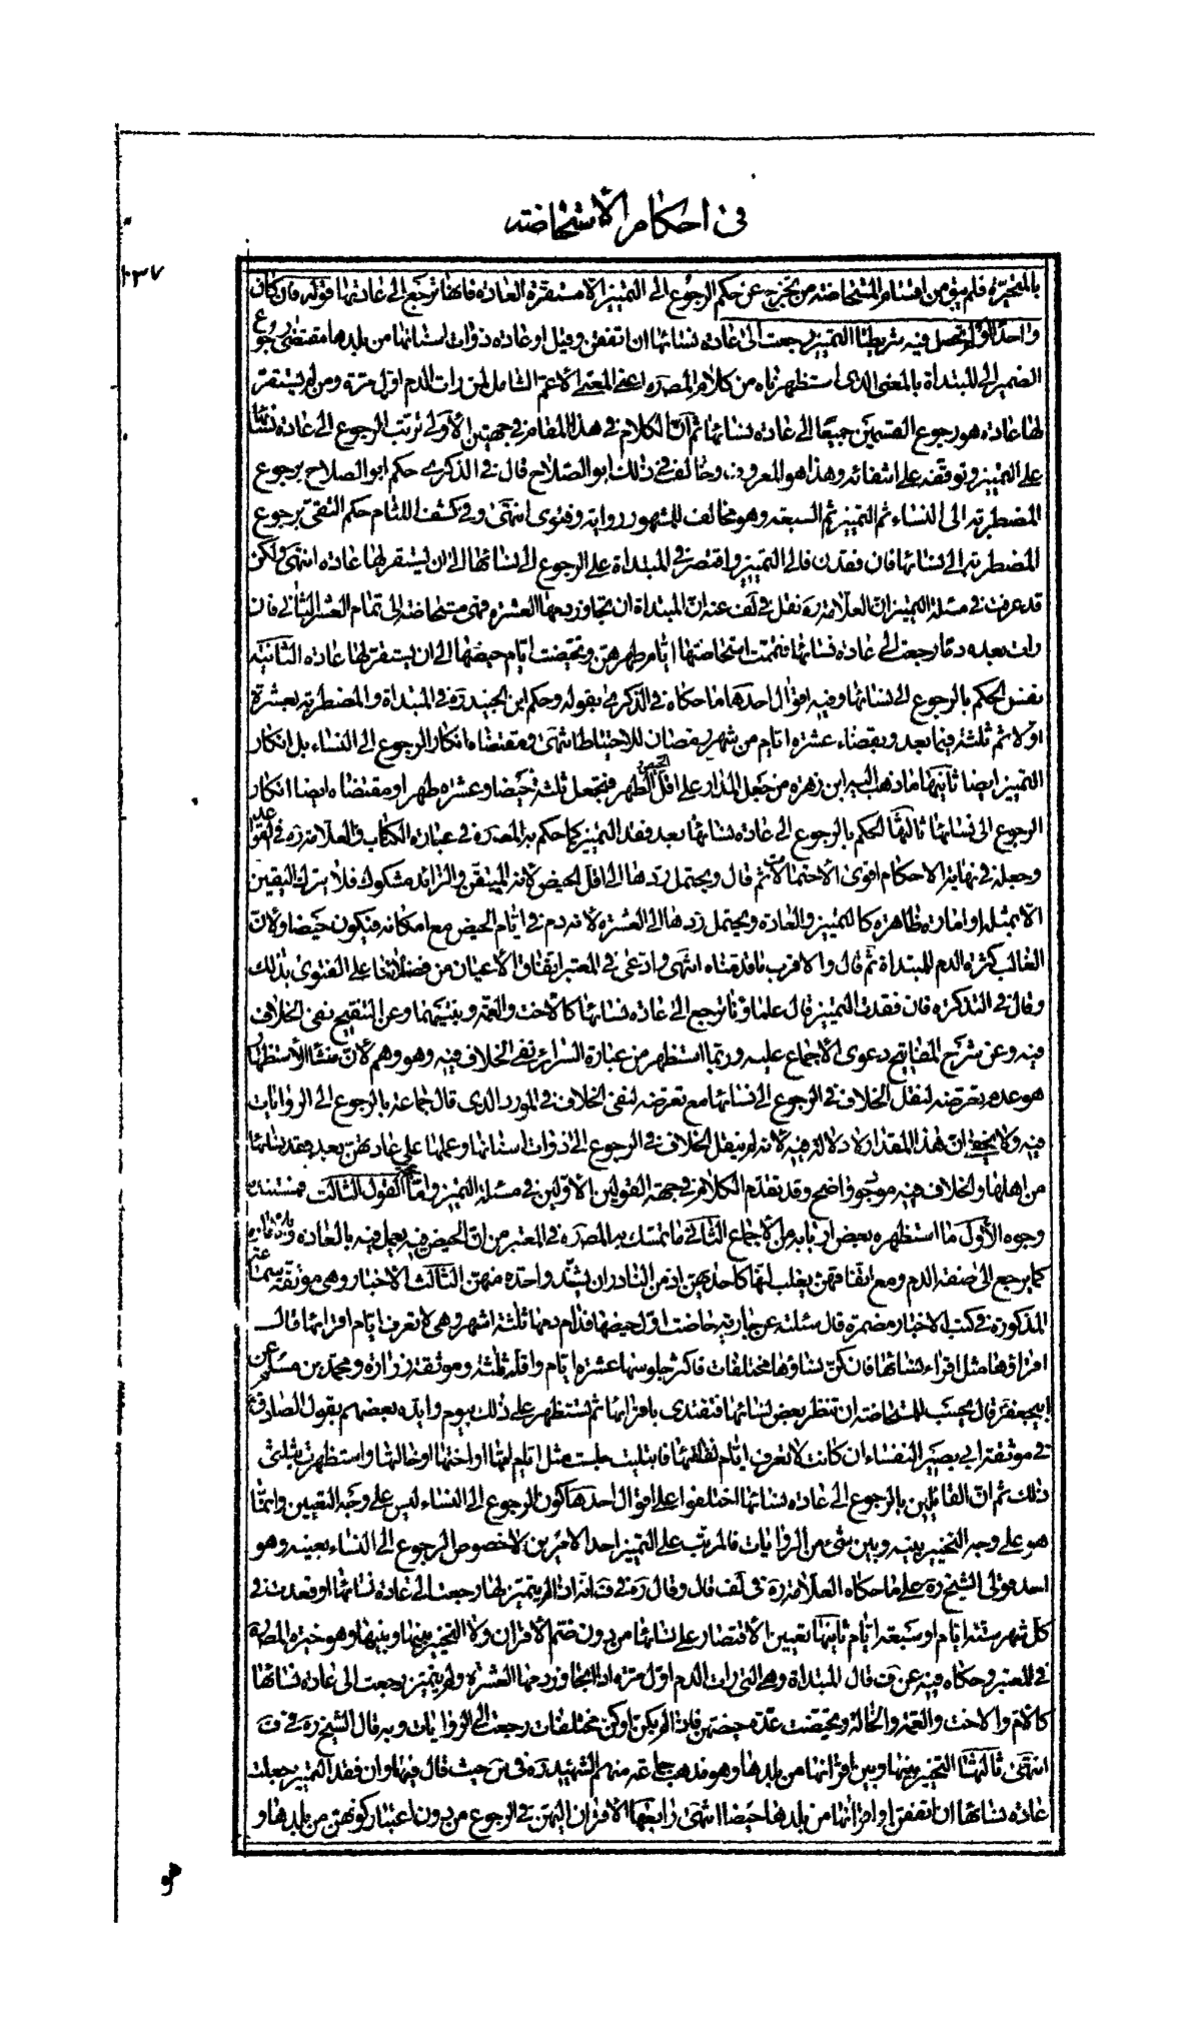 في احكام الاستحاضة
١٣٧
بالمتحيّرة فلم يبق من اقسام المستحاضة من يخرج عن حكم الرجوع الى التميز الّا مستقرة العادة فانها ترجع الى عادتها قوله فان كان
واحدا او لم يحصل فيه شريطتا التميز رجعت الى عادة نسائها ان اتفقن وقيل او عادة ذوات اسنانها من بلدها مقتضى رجوع
الضمير الى المبتدأة بالمعنى الذى استظهرناه من كلام المصره اعنى المعنى الاعم الشامل لمن رات الدم اول مرة ومن لم يستقر
لها عادة هو رجوع القسمين جميعا الى عادة نسائها ثم ان الكلام في هذا المقام في جهتين الاولى ترتب الرجوع الى عادة نسائها
على التميز وتوقفه على انتفائه وهذا هو المعروف وخالف في ذلك ابو الصلاح قال في الذكرى حكم ابو الصلاح برجوع
المضطربة الى النساء ثم التميز ثم السبعة وهو مخالف للمشهور رواية وفتوى انتهى وفي كشف اللثام حكم التقى برجوع
المضطربة الى نسائها فان فقدن فالى التميز واقتصر في المبتدأة على الرجوع الى نسائها الى ان يستقر لها عادة انتهى ولكن
قد عرفت في مسئلة التميز ان العلامة ره نقل في لف عنه ان المبتدأة ان تجاوز دمها العشرة فهى مستحاضة الى تمام العشر الثانى فان
رات بعده دما رجعت الى عادة نسائها فتممت استحاضتها ايام طهرهن وتحيضت ايام حيضها الى ان يستقر لها عادة الثانية
نفس الحكم بالرجوع الى نسائها وفيه اقوال احدها ما حكاه في الذكرى بقوله وحكم ابن الجنيد ره في المبتدأة والمضطربة بعشرة
اولا ثم ثلثة فيما بعد وبقضاء عشرة ايام من شهر رمضان للاحتياط انتهى ومقتضاه انكار الرجوع الى النساء بل انكار
التميز ايضا ثانيها ما ذهب اليه ابن زهره من جعل المدار على اقل الطهر فتجعل ثلثة حيضا وعشرة طهرا ومقتضاه ايضا انكار
الرجوع الى نسائها ثالثها الحكم بالرجوع الى عادة نسائها بعد فقد التميز كما حكم به المصره في عبارة الكتاب والعلامة ره في القواعد
وجعله في نهاية الاحكام اقوى الاحتمالات ثم قال ويحتمل ردها الى اقل الحيض لانه المتيقن والزائد مشكوك فلا يترك اليقين
الّا بمثله او امارة ظاهرة كالتميز والعادة ويحتمل ردها الى العشرة لانه دم في ايام الحيض مع امكانه فيكون حيضا ولان
الغالب كثرة الدم للمبتدأة ثم قال والاقرب ما قدمناه انتهى وادعى في المعتبر اتفاق الاعيان من فضلائنا على الفتوى بذلك
وقال في التذكرة فان فقدت التميز قال علماؤنا ترجع الى عادة نسائها كالاخت والعمة وبنتيهما وعن التنقيح نفى الخلاف
فيه وعن شرح المفاتيح دعوى الاجماع عليه وربما استظهر من عبارة السرائر نفى الخلاف فيه وهو وهم لان منشا الاستظهار
هو عدم تعرضه لنقل الخلاف في الرجوع الى نسائها مع تعرضه لنفى الخلاف في المورد الذى قال جماعة بالرجوع الى الروايات
فيه ولا يخفى ان هذا المقدار لا دلالة فيه لانه لم ينقل الخلاف في الرجوع الى ذوات اسنانها وعملها على عادتهن بعد فقد نسائها
من اهلها والخلاف فيه موجود واضح وقد تقدم الكلام في جهة القولين الاولين في مسئلة التميز وامّا القول الثالث فمستنده
وجوه الاول ما استظهره بعض اربابه من الاجماع الثانى ما تمسك به المصره في المعتبر من ان الحيض فيه يعمل فيه بالعادة
كما يرجع الى صفة الدم ومع اتفاقهن يغلب انها كاحديهن اذ من النادر ان يشذ واحدة منهن الثالث الاخبار وهى موثقة سماعة
المذكورة في كتب الاخبار مضمرة قال سئلته عن جارية حاضت اول حيضها فدام دمها ثلثة اشهر وهى لا تعرف ايام اقرائها قال
اقراؤها مثل اقراء نسائها فان كن نساؤها مختلفات فاكثر جلوسها عشرة ايام واقله ثلثة وموثقة زرارة ومحمد بن مسلم عن
ابيجعفر قال يجب للمستحاضة ان تنظر بعض نسائها فتقتدى باقرائها ثم تستظهر على ذلك بيوم وايده بعضهم بقول الصادق
في موثقة ابى بصير النفساء ان كانت لا تعرف ايام نفاسها فابتليت جلست مثل ايام امها او اختها او خالتها واستظهرت بثلثى
ذلك ثم ان القائلين بالرجوع الى عادة نسائها اختلفوا على اقوال احدها كون الرجوع الى النساء ليس على وجه التعيين وانما
هو على وجه التخيير بينه وبين شىء من الروايات فالمرتب على التميز احد الامرين لا خصوص الرجوع الى النساء بعينه وهو
احد قولى الشيخ ره على ما حكاه العلامة ره في لف قال وقال ره في ف انه ان لم يتميز لها رجعت الى عادة نسائها او قعدت في
كل شهر ستة ايام او سبعة ايام ثانيها تعيين الاقتصار على نسائها من دون ضم الاقران ولا التخيير بينها وبينها وهو خيرة المصره
في المعتبر وحكاه فيه عن ف قال المبتدأة وهى التى رات الدم اول مرة اذا تجاوز دمها العشرة ولم يتميز رجعت الى عادة نسائها
كالام والاخت والعمة والخالة وتحيضت عدة حيضهن فاذا لم يكن او كن مختلفات رجعت الى الروايات وبه قال الشيخ ره في ف
انتهى ثالثها التخيير بينها وبين اقرانها من بلدها وهو مذهب جماعة منهم الشهيد ره في ن حيث قال فيها وان فقد التميز جعلت
عادة نسائها ان اتفقن او اقرانها من بلدها حيضا انتهى رابعها الاقران اليهن في الرجوع من دون اعتبار كونهن من بلدها و
هو